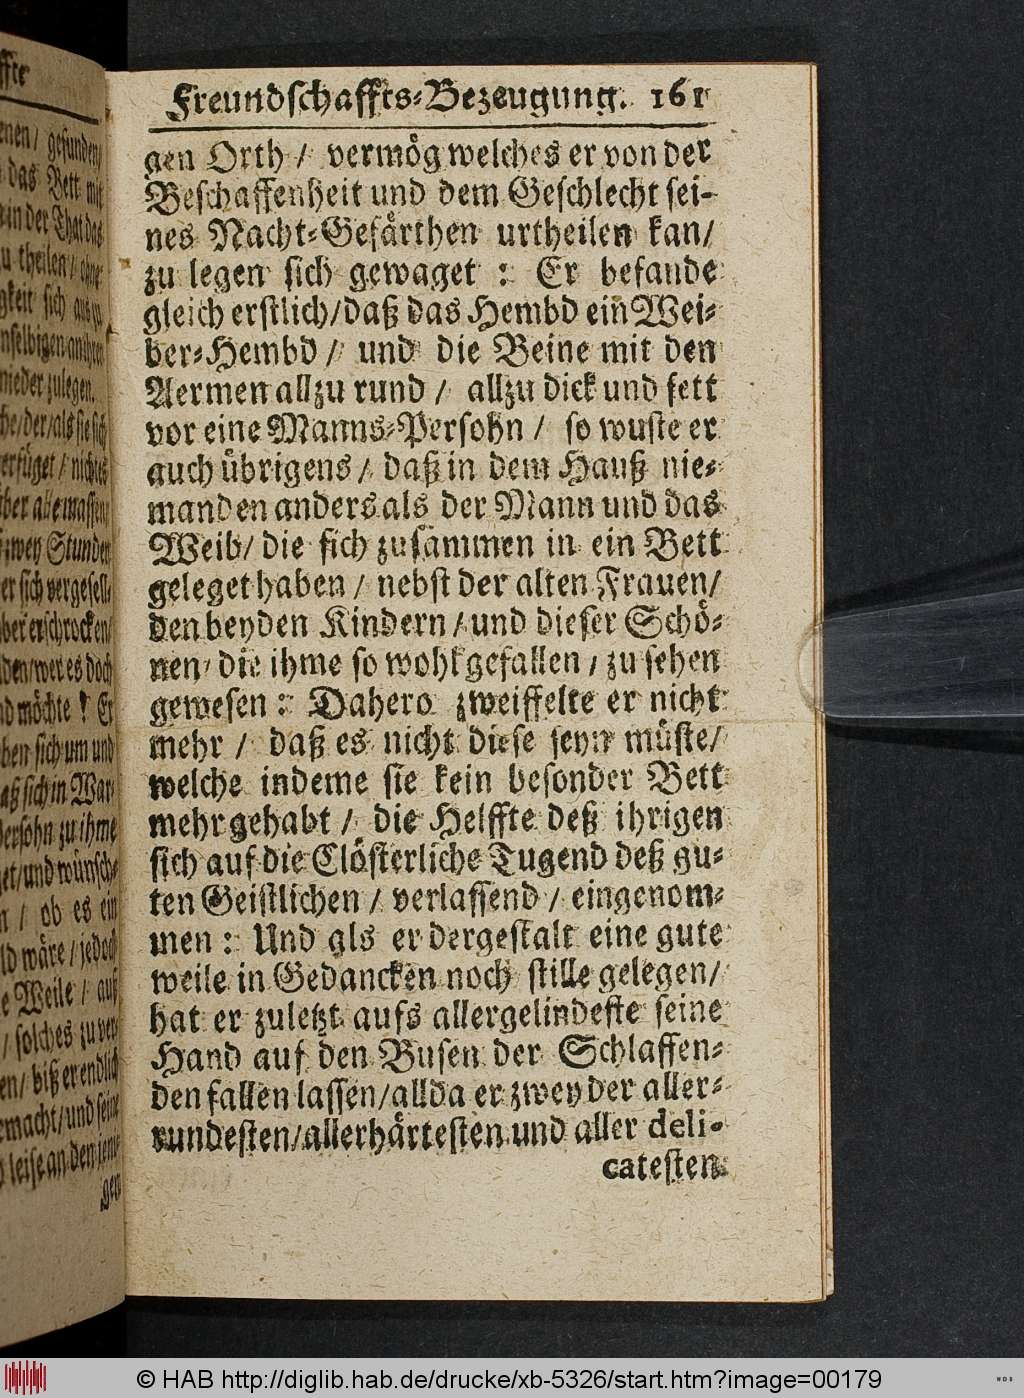 Freundschaffts-Bezeugung. 161
gen Orth / vermög welches er von der
Beschaffenheit und dem Geschlecht sei-
nes Nacht-Gefärthen urtheilen kan/
zu legen sich gewaget : Er befande
gleich erstlich/daß das Hembd ein Wei-
ber-Hembd / und die Beine mit den
Aermen allzu rund / allzu dick und fett
vor eine Manns-Persohn / so wuste er
auch übrigens / daß in dem Hauß nie-
manden anders als der Mann und das
Weib/ die sich zusammen in ein Bett
geleget haben / nebst der alten Frauen/
den beyden Kindern / und dieser Schö-
nen/ die ihme so wohl gefallen / zu sehen
gewesen : Dahero zweiffelte er nicht
mehr / daß es nicht diese seyn müste/
welche indeme sie kein besonder Bett
mehr gehabt / die Helffte deß ihrigen
sich auf die Clösterliche Tugend deß gu-
ten Geistlichen / verlassend / eingenom-
men : Und als er dergestalt eine gute
weile in Gedancken noch stille gelegen/
hat er zuletzt aufs allergelindeste seine
Hand auf den Busen der Schlaffen-
den fallen lassen/allda er zwey der aller-
rundesten/allerhärtesten und aller deli-
catesten
© HAB http://diglib.hab.de/drucke/xb-5326/start.htm?image=00179